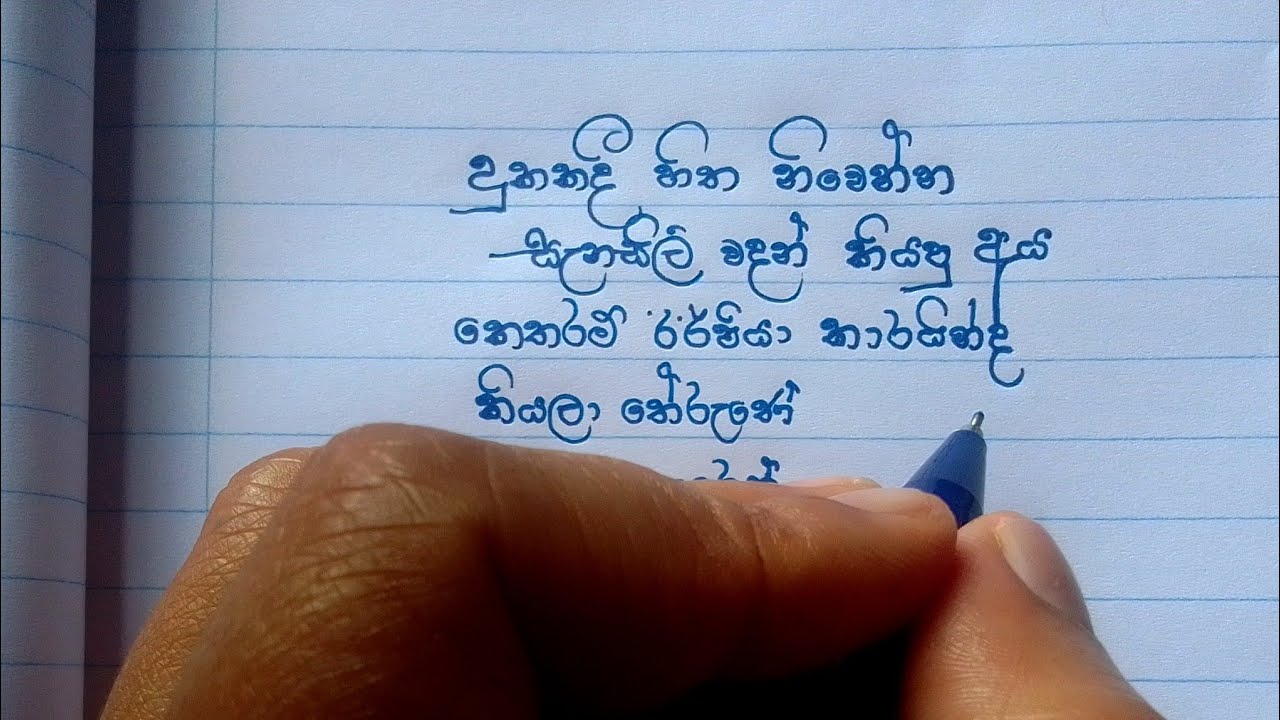 දුකකදී හිත නිවෙන්න
සැනසිලි වදන් කියපු අය
කෙතරම් ඊර්ෂියා කාරයින්ද
කියලා තේරුණේ